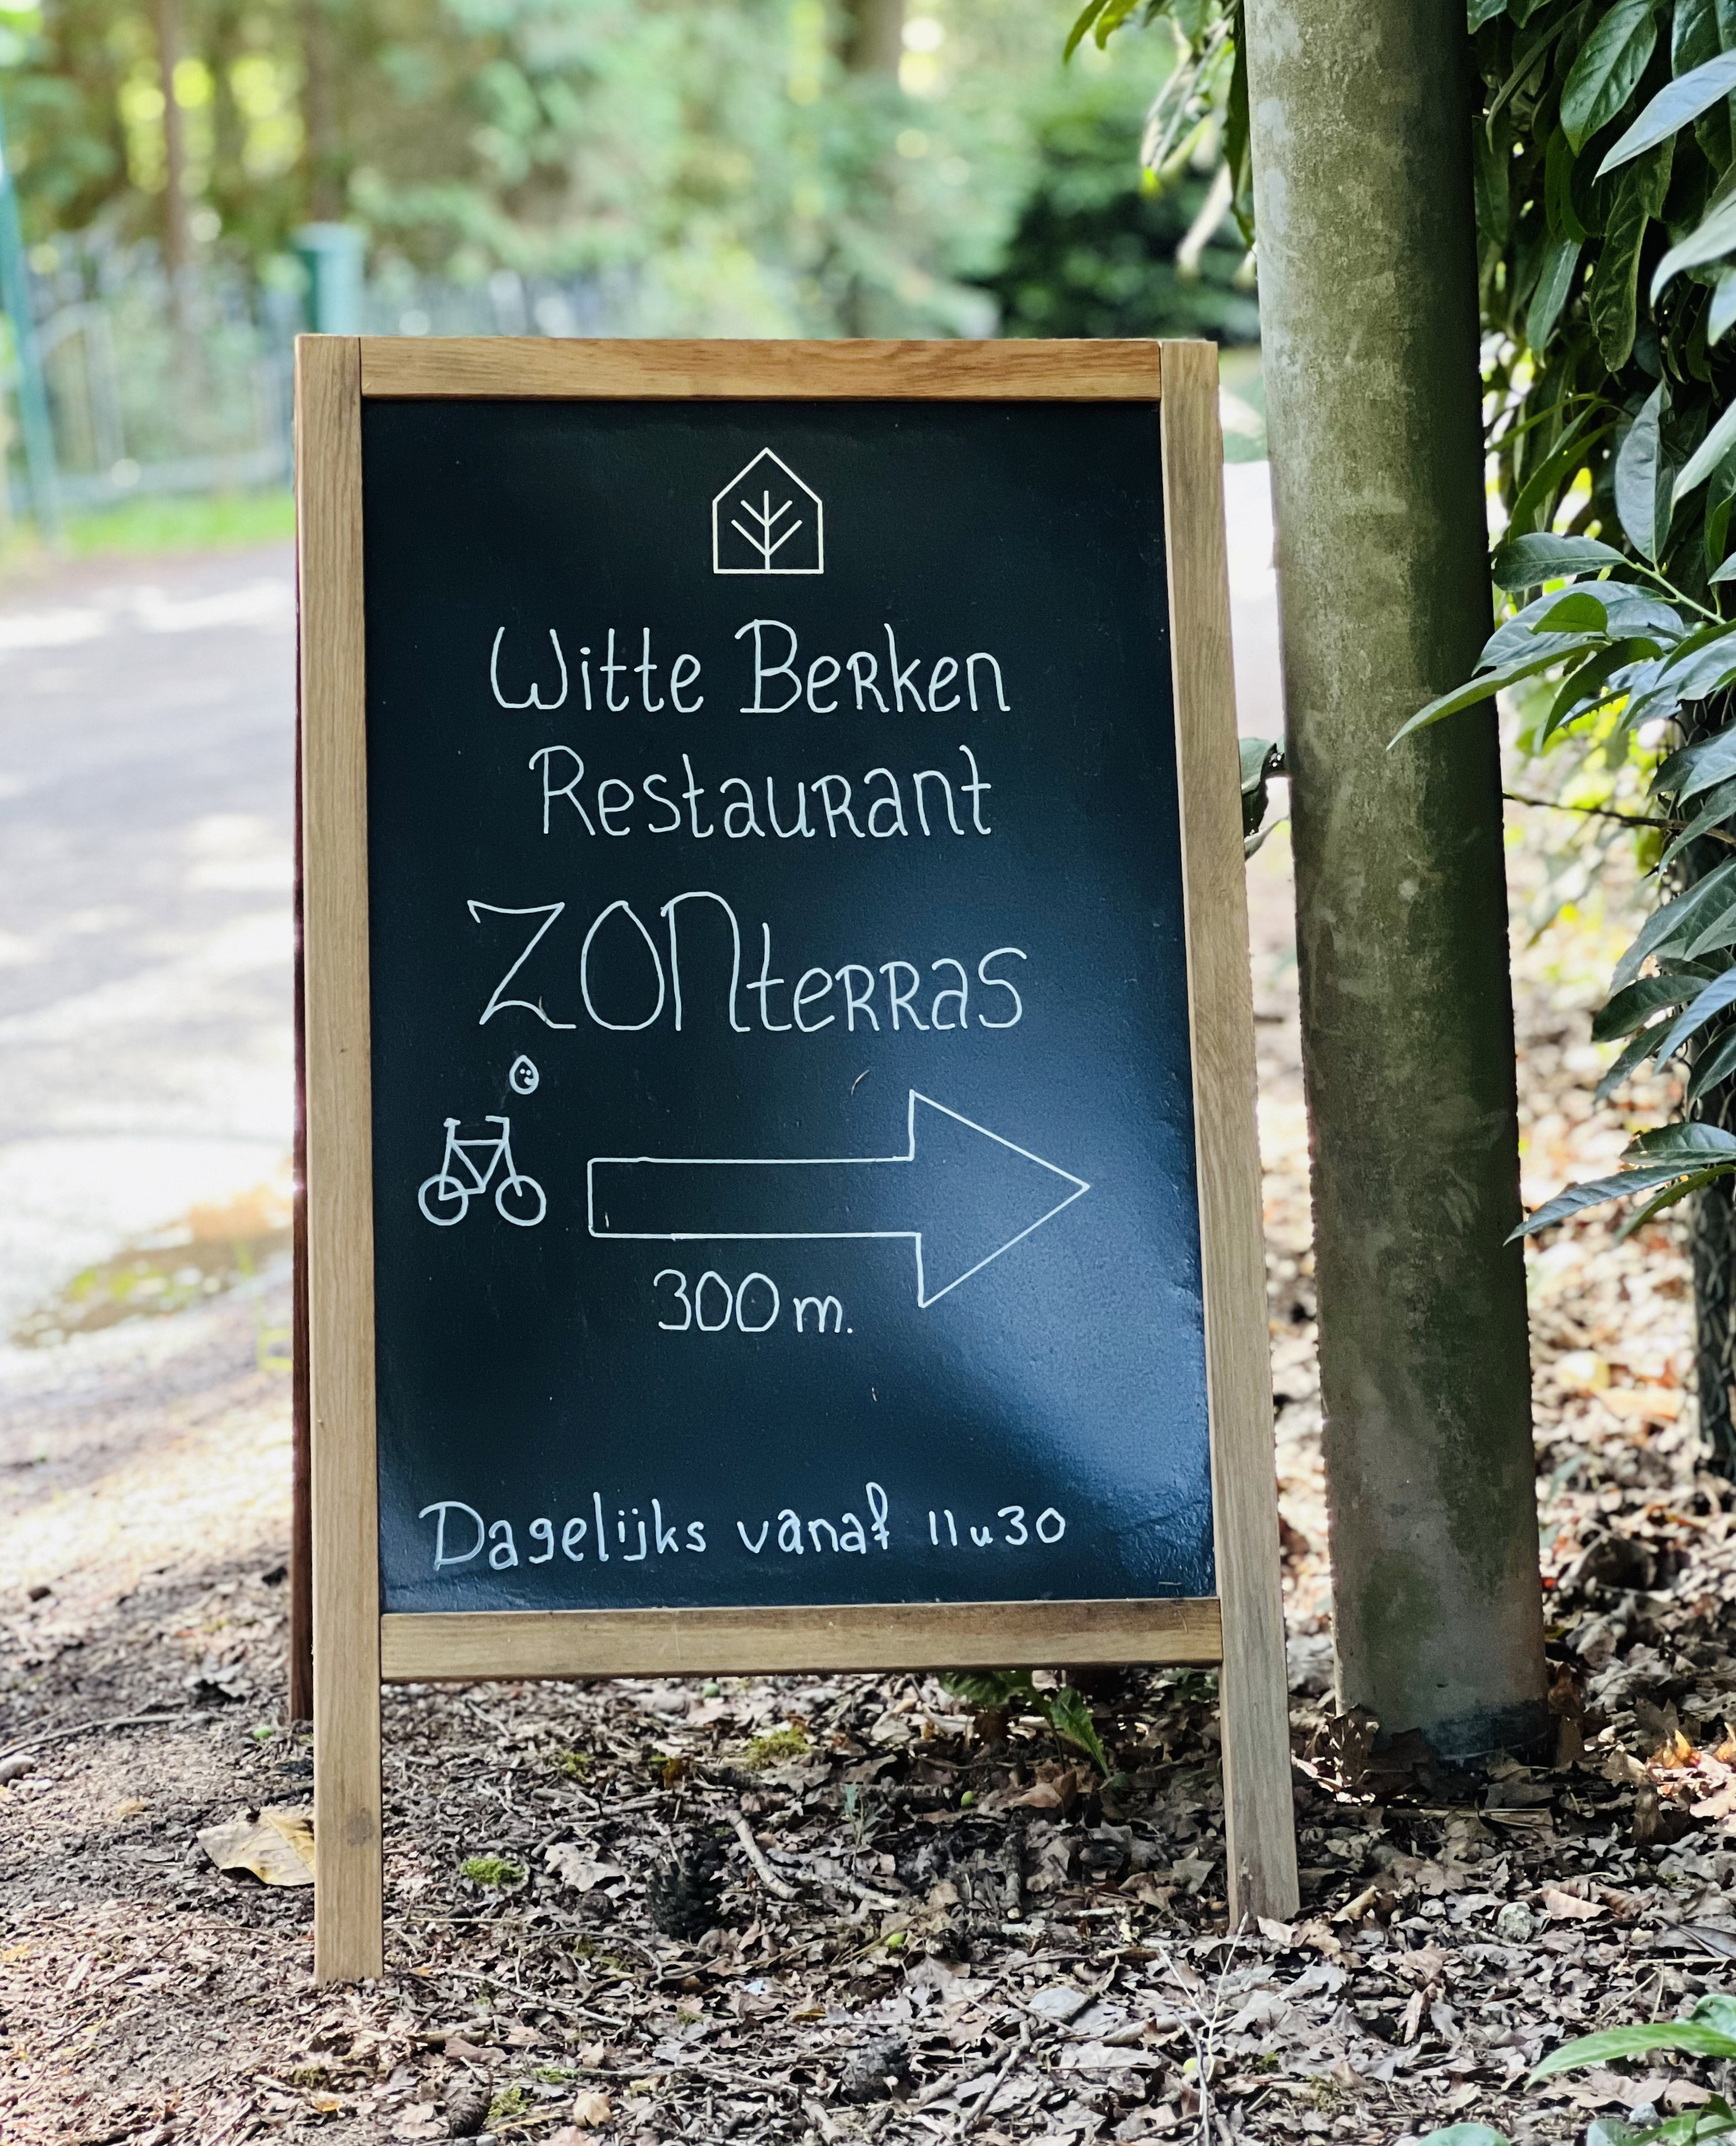 Witte Berken
Restaurant
ZONterras
300 m.
Dagelijks vanaf 11u30